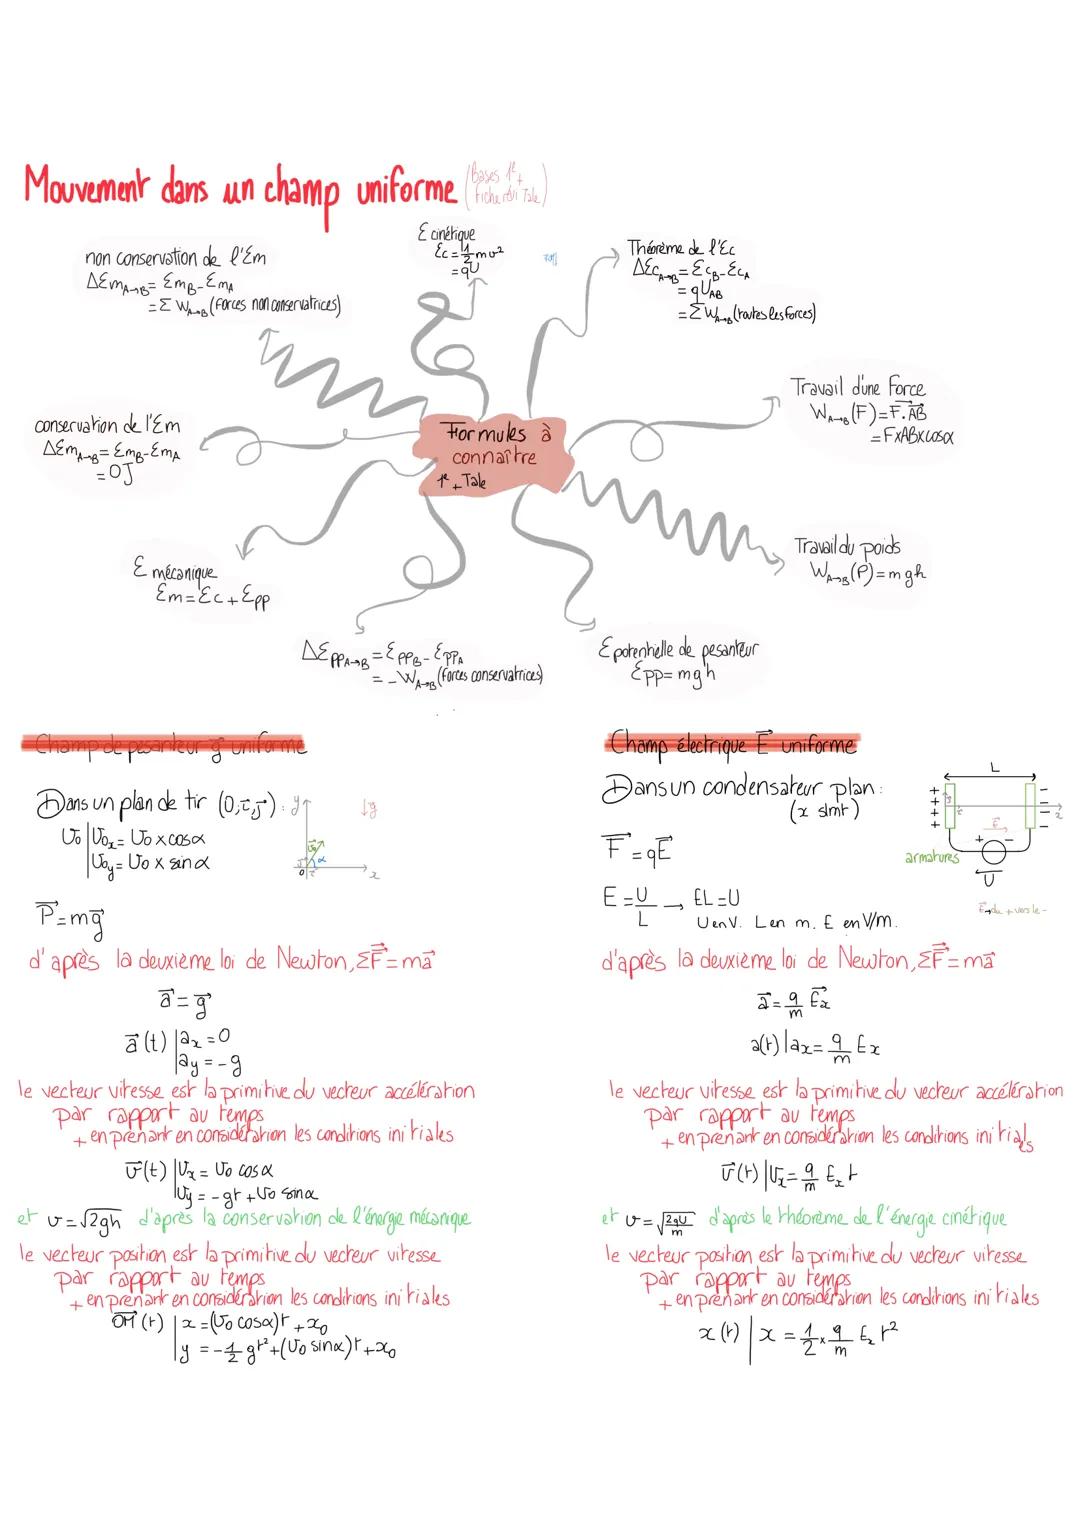 Mouvement dans un champ uniforme (Bases 1e + Fiche rév Tale)
E cinétique
Ec = 1/2 mv²
= qU
non conservation de l'Em
ΔEm A→B = Em B - Em A
= Σ W A→B (forces non conservatrices)
Théorème de l'Ec
ΔEc A→B = Ec B - Ec A
= qU AB
= Σ W A→B (toutes les forces)
Travail d'une force
W A→B (F) = F⃗ . AB⃗
= F×AB×cosα
conservation de l'Em
ΔEm A→B = Em B - Em A
= 0J
Formules à
connaître
1e + Tale
Travail du poids
W A→B (P⃗) = mgh
E mécanique
Em = Ec + Epp
ΔEpp A→B = Epp B - Epp A
= - W A→B (forces conservatrices)
E potentielle de pesanteur
Epp = mgh
Champ de pesanteur g⃗ uniforme
Dans un plan de tir (O, i⃗, j⃗) :
v0 | v0x = v0 × cosα
| v0y = v0 × sinα
y
g⃗
v0⃗
α
j⃗
O
i⃗
x
P⃗ = mg⃗
d'après la deuxième loi de Newton, ΣF⃗ = ma⃗
a⃗ = g⃗
a⃗(t) | ax = 0
| ay = -g
le vecteur vitesse est la primitive du vecteur accélération
par rapport au temps
+ en prenant en considération les conditions initiales
v⃗(t) | vx = v0 cosα
| vy = -gt + v0 sinα
et v = √2gh d'après la conservation de l'énergie mécanique
le vecteur position est la primitive du vecteur vitesse
par rapport au temps
+ en prenant en considération les conditions initiales
OM⃗(t) | x = (v0 cosα)t + x0
| y = -1/2 gt² + (v0 sinα)t + x0
Champ électrique E⃗ uniforme
Dans un condensateur plan :
(x slmt)
L
E⃗
x
+ -
armatures
U
E→du + vers le -
F⃗ = qE⃗
E = U/L → EL = U
U en V. L en m. E en V/m.
d'après la deuxième loi de Newton, ΣF⃗ = ma⃗
a⃗ = q/m Ex⃗
a(t) | ax = q/m Ex
le vecteur vitesse est la primitive du vecteur accélération
par rapport au temps
+ en prenant en considération les conditions initials
v⃗(t) | vx = q/m Ex t
et v = √2qU/m d'après le théorème de l'énergie cinétique
le vecteur position est la primitive du vecteur vitesse
par rapport au temps
+ en prenant en considération les conditions initiales
x(t) | x = 1/2 × q/m Ex t²